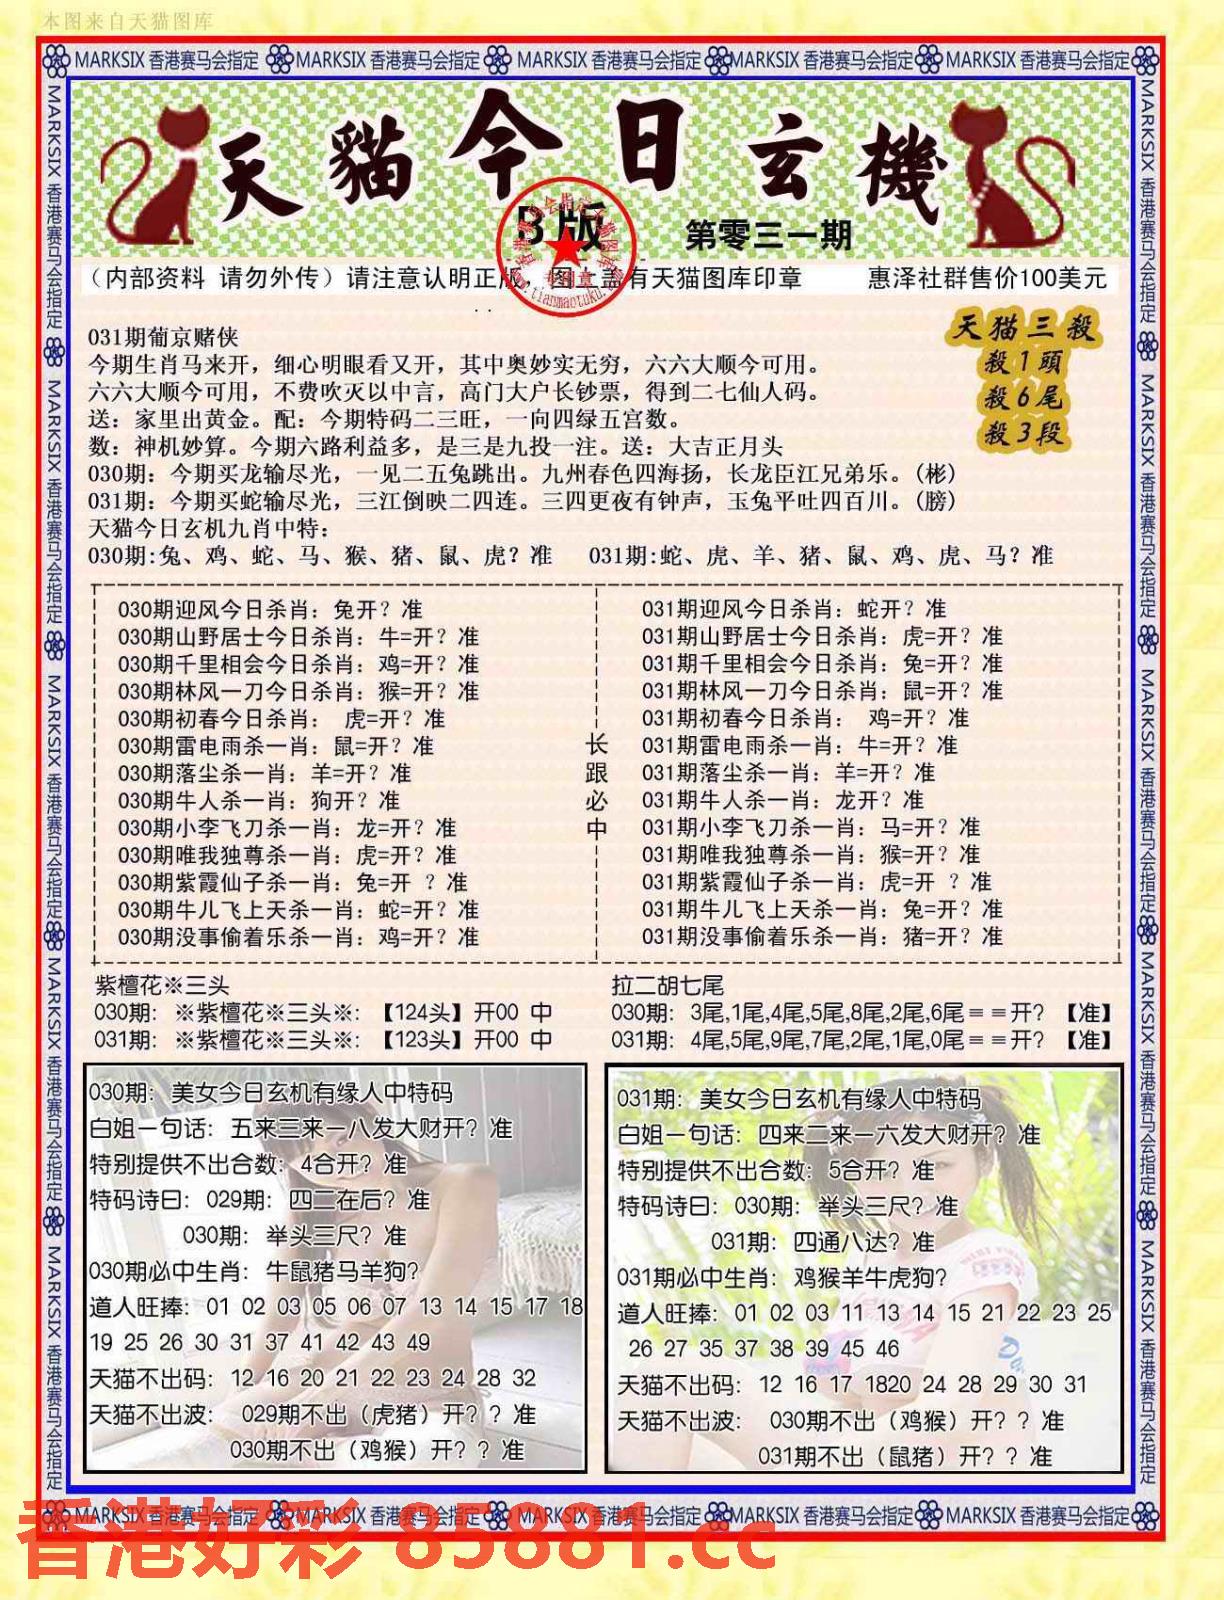 本图来自天猫图库
MARKSIX 香港赛马会指定 MARKSIX 香港赛马会指定 MARKSIX 香港赛马会指定 MARKSIX 香港赛马会指定 MARKSIX 香港赛马会指定
MARKSIX 香港赛马会指定 MARKSIX 香港赛马会指定 MARKSIX 香港赛马会指定 MARKSIX 香港赛马会指定 MARKSIX 香港赛马会指定
天貓今日玄機
B版
第零三一期
（内部资料 请勿外传）请注意认明正版 图上盖有天猫图库印章 惠泽社群售价100美元
专用章
www.tianmaotuku.com
天猫三殺
殺1頭
殺6尾
殺3段
031期葡京赌侠
今期生肖马来开，细心明眼看又开，其中奥妙实无穷，六六大顺今可用。
六六大顺今可用，不费吹灭以中言，高门大户长钞票，得到二七仙人码。
送：家里出黄金。配：今期特码二三旺，一向四绿五宫数。
数：神机妙算。今期六路利益多，是三是九投一注。送：大吉正月头
030期：今期买龙输尽光，一见二五兔跳出。九州春色四海扬，长龙臣江兄弟乐。（彬）
031期：今期买蛇输尽光，三江倒映二四连。三四更夜有钟声，玉兔平吐四百川。（膀）
天猫今日玄机九肖中特：
030期:兔、鸡、蛇、马、猴、猪、鼠、虎？准 031期:蛇、虎、羊、猪、鼠、鸡、虎、马？准
030期迎风今日杀肖：兔开？准
030期山野居士今日杀肖：牛=开？准
030期千里相会今日杀肖：鸡=开？准
030期林风一刀今日杀肖：猴=开？准
030期初春今日杀肖： 虎=开？准
030期雷电雨杀一肖：鼠=开？准
030期落尘杀一肖：羊=开？准
030期牛人杀一肖：狗开？准
030期小李飞刀杀一肖：龙=开？准
030期唯我独尊杀一肖：虎=开？准
030期紫霞仙子杀一肖：兔=开 ？准
030期牛儿飞上天杀一肖：蛇=开？准
030期没事偷着乐杀一肖：鸡=开？准
长跟必中
031期迎风今日杀肖：蛇开？准
031期山野居士今日杀肖：虎=开？准
031期千里相会今日杀肖：兔=开？准
031期林风一刀今日杀肖：鼠=开？准
031期初春今日杀肖： 鸡=开？准
031期雷电雨杀一肖：牛=开？准
031期落尘杀一肖：羊=开？准
031期牛人杀一肖：龙开？准
031期小李飞刀杀一肖：马=开？准
031期唯我独尊杀一肖：猴=开？准
031期紫霞仙子杀一肖：虎=开 ？准
031期牛儿飞上天杀一肖：兔=开？准
031期没事偷着乐杀一肖：猪=开？准
紫檀花※三头
030期：※紫檀花※三头※：【124头】开00 中
031期：※紫檀花※三头※：【123头】开00 中
拉二胡七尾
030期：3尾,1尾,4尾,5尾,8尾,2尾,6尾＝＝开？【准】
031期：4尾,5尾,9尾,7尾,2尾,1尾,0尾＝＝开？【准】
030期：美女今日玄机有缘人中特码
白姐一句话：五来三来一八发大财开？准
特别提供不出合数：4合开？准
特码诗曰：029期：四二在后？准
030期：举头三尺？准
030期必中生肖：牛鼠猪马羊狗？
道人旺捧：01 02 03 05 06 07 13 14 15 17 18
19 25 26 30 31 37 41 42 43 49
天猫不出码：12 16 20 21 22 23 24 28 32
天猫不出波： 029期不出（虎猪）开？？准
030期不出（鸡猴）开？？准
031期：美女今日玄机有缘人中特码
白姐一句话：四来二来一六发大财开？准
特别提供不出合数：5合开？准
特码诗曰：030期：举头三尺？准
031期：四通八达？准
031期必中生肖：鸡猴羊牛虎狗？
道人旺捧：01 02 03 11 13 14 15 21 22 23 25
26 27 35 37 38 39 45 46
天猫不出码：12 16 17 1820 24 28 29 30 31
天猫不出波： 030期不出（鸡猴）开？？准
031期不出（鼠猪）开？？准
MARKSIX 香港赛马会指定 MARKSIX 香港赛马会指定 MARKSIX 香港赛马会指定 MARKSIX 香港赛马会指定 MARKSIX 香港赛马会指定
MARKSIX 香港赛马会指定 MARKSIX 香港赛马会指定 MARKSIX 香港赛马会指定 MARKSIX 香港赛马会指定 MARKSIX 香港赛马会指定
香港好彩 85881.cc